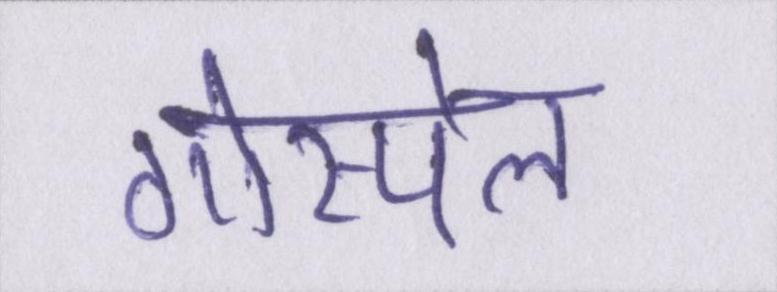 गोस्पेल